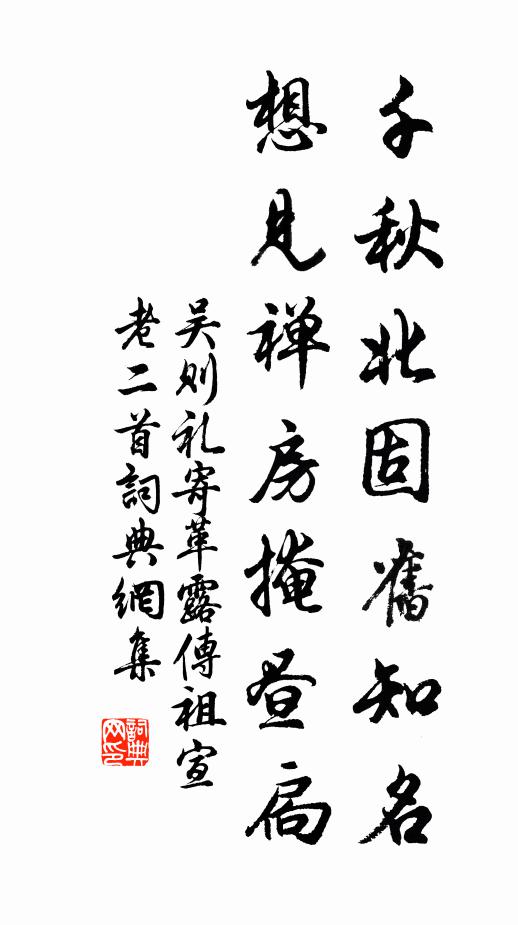 千秋北固舊知名
想見禅房掩昼扃
吴则礼寄革露傳祖宣
老二首詞典網集
詞典网印